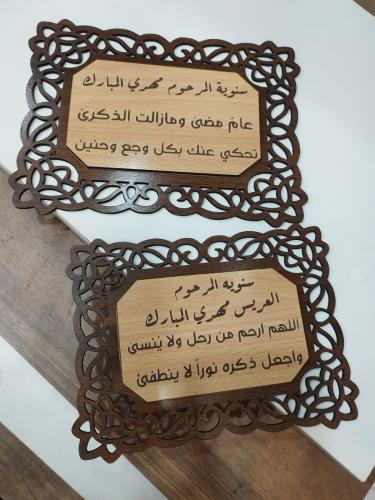 سنوية المرحوم مهدي المبارك
عامٌ مضى ومازالت الذكرى
تحكي عنك بكل وجع وحنين
سنويه المرحوم
العريس مهدي المبارك
اللهم ارحم من رحل ولا يُنسى
واجعل ذكره نوراً لا ينطفئ